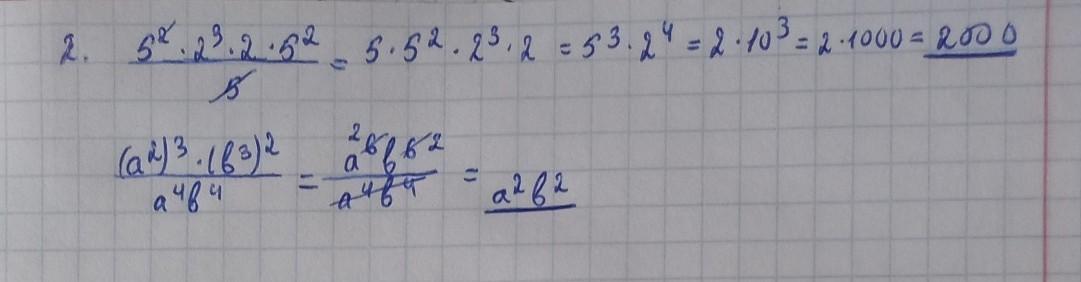 2. 5² · 2³ · 2 · 5² / 5 = 5 · 5² · 2³ · 2 = 5³ · 2⁴ = 2 · 10³ = 2 · 1000 = 2000
(a²)³ · (в³)² / a⁴в⁴ = a⁶² в⁶² / a⁴в⁴ = a²в²